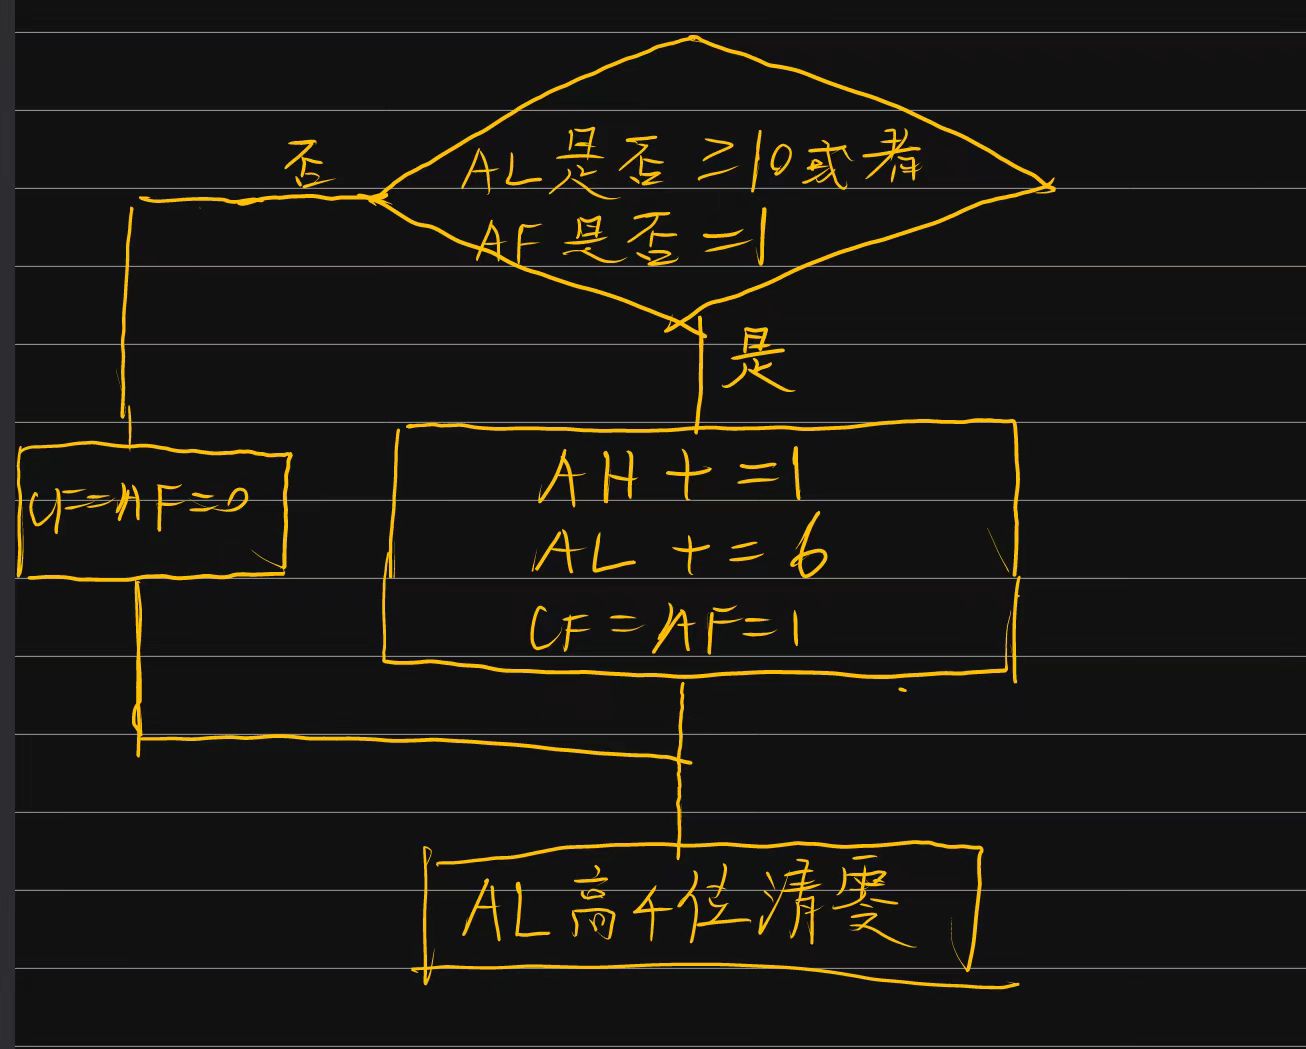 否
AL是否≥10或者
AF是否=1
是
CF=AF=0
AH+=1
AL+=6
CF=AF=1
AL高4位清零